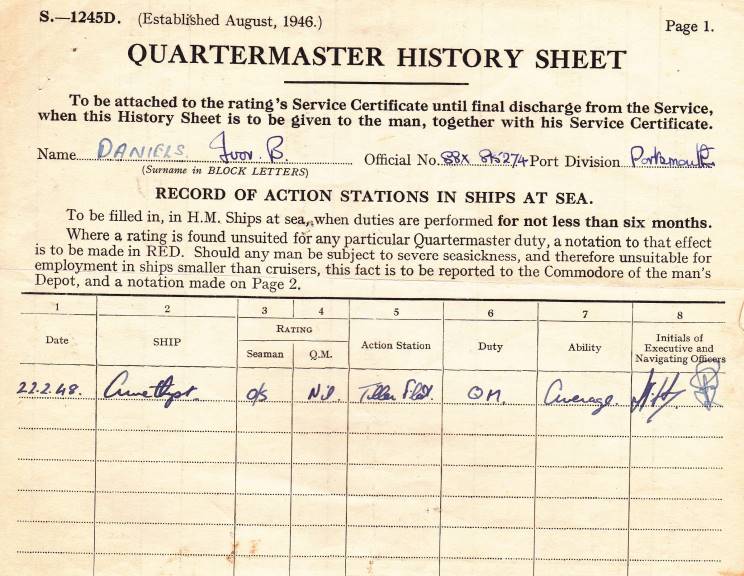 S.—1245D. (Established August, 1946.)
Page 1.
QUARTERMASTER HISTORY SHEET
To be attached to the rating's Service Certificate until final discharge from the Service,
when this History Sheet is to be given to the man, together with his Service Certificate.
Name DANIELS. Ivor. B. Official No. SSX 815274 Port Division Portsmouth
(Surname in BLOCK LETTERS)
RECORD OF ACTION STATIONS IN SHIPS AT SEA.
To be filled in, in H.M. Ships at sea, when duties are performed for not less than six months.
Where a rating is found unsuited for any particular Quartermaster duty, a notation to that effect
is to be made in RED. Should any man be subject to severe seasickness, and therefore unsuitable for
employment in ships smaller than cruisers, this fact is to be reported to the Commodore of the man's
Depot, and a notation made on Page 2.
1 2 3 4 5 6 7 8
Date SHIP RATING Action Station Duty Ability Initials of
Executive and
Navigating Officers
Seaman Q.M.
22.2.48. Amethyst. O/S Nil. Tiller Flat. QM. Average.